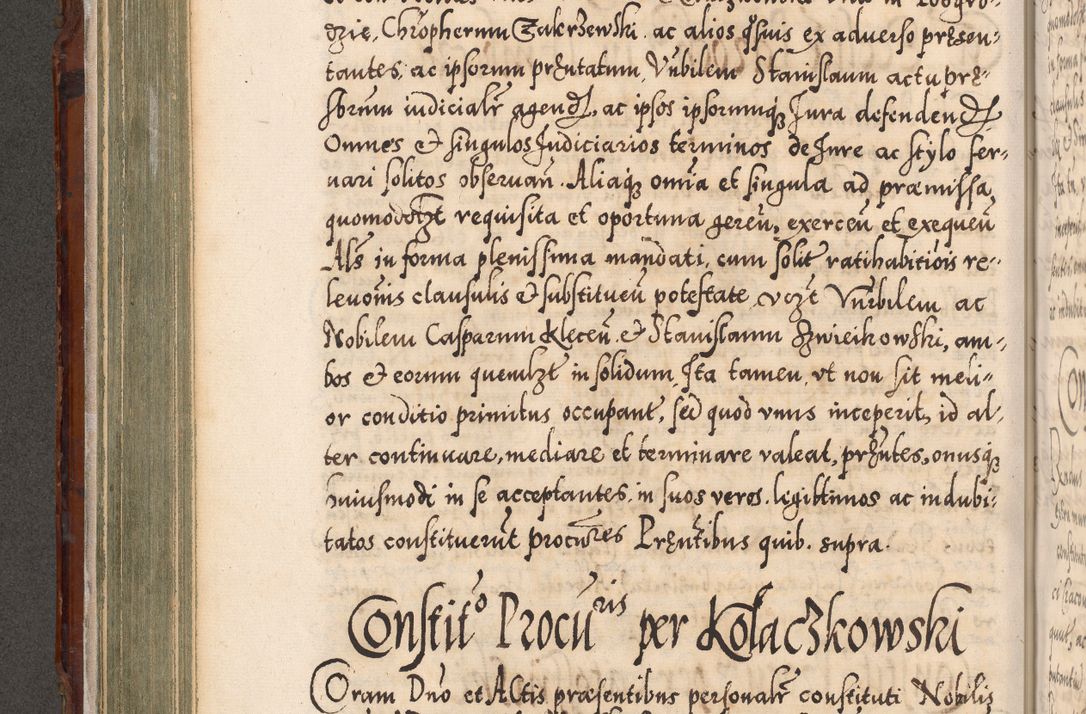 dzie, Chrōphernm Zakrzewski. ac alios qsuis ex aduerso pręsen-
tantes, ac ipsorum prēntatum, Vnbilem Stanislaum actu prę-
sbrnm iudicialr agend, ac ipsos ipsorumq Jura defendend
Omnes et singulos Judiciarios terminos de Jure ac stylo ser-
uari solitos obseruan. Aliaq omīa et singula ad præmissa
quomodolzt requisita et oportuna gereū, exerceū et exequeū
Als in forma plenissima mandati, cum solit ratihabitiōis re-
leuōnis clausulis et substitueū potestate vczt Vnrbilem ac
Nobilem Casparum Kleceū et Stanislaum Zwieikowski, am-
bos et eorum quemlzt in solidum, Ita tamen, vt non sit meli-
or conditio primitus occupant, sed quod vnus inceperit, id al-
ter continuare, mediare et terminare valeat, prēntes, onusq
huiusmodi in se acceptantes, in suos veros, legittimos ac indubi-
tatos constituerūt procures Prēntibus quib. supra.
Constito Procuris per Kołaczkowski
Coram Dno et Actis præsentibus personalr constituti Nobilis